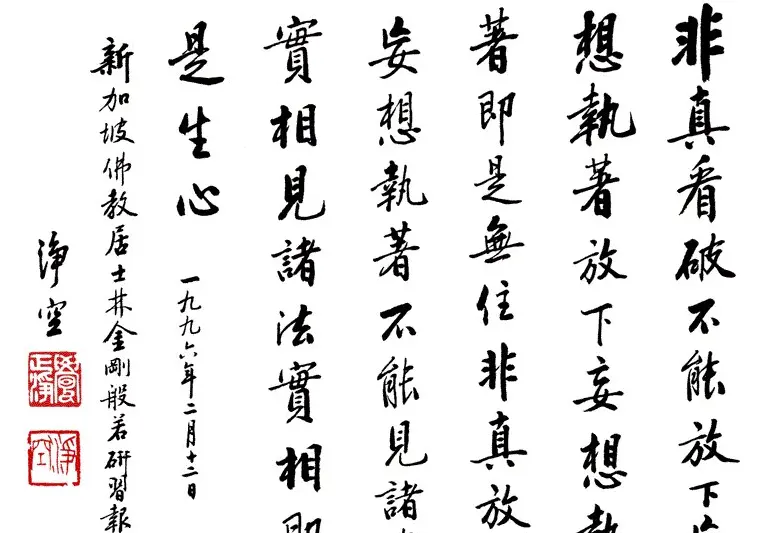 非真看破不能放下
想執著放下妄想執
著即是無住非真放
妄想執著不能見諸
實相見諸法實相即
是生心
一九九六年二月十二日
新加坡佛教居士林金剛般若研習報
淨空